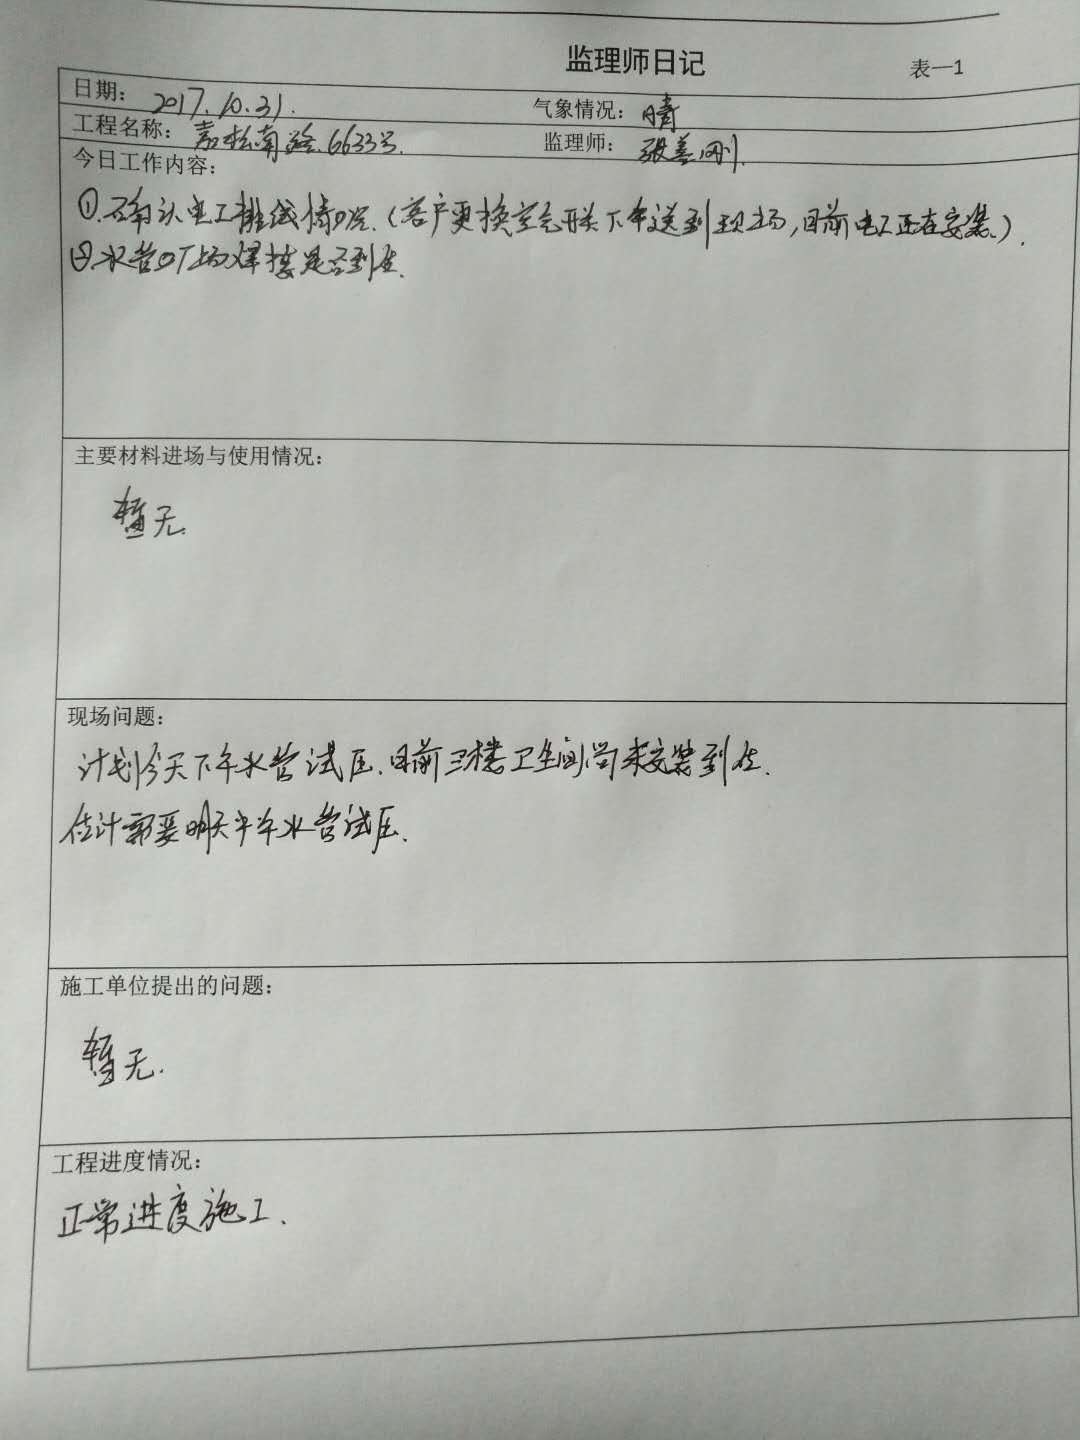 监理师日记
表一1
日期： 2017.10.31.
气象情况： 晴
工程名称： 嘉松南路.6633号.
监理师： 张善刚.
今日工作内容：
①.确认电工排线情况.（客户更换空气开关下午送到现场，目前电工正在安装.）.
②.水管 场焊接是否到位.
主要材料进场与使用情况：
暂无.
现场问题：
计划今天下午水管试压.目前三楼卫生间尚未安装到位.
估计需要明天 午水管试压.
施工单位提出的问题：
暂无.
工程进度情况：
正常进度施工.